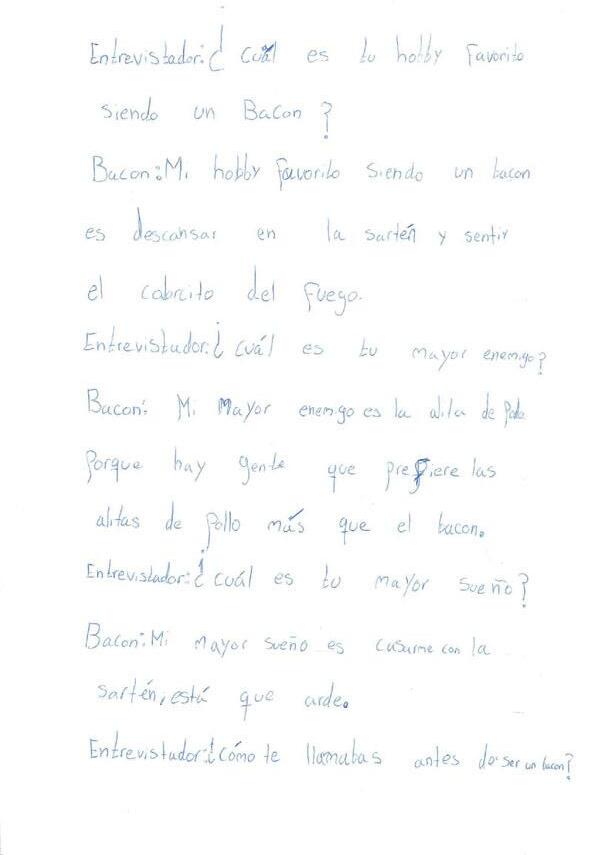 Entrevistador:¿ cuál es tu hobby favorito
siendo un Bacon?
Bacon:Mi hobby favorito siendo un bacon
es descansar en la sartén y sentir
el calorcito del fuego.
Entrevistador:¿ cuál es tu mayor enemigo?
Bacon: Mi Mayor enemigo es la alita de Pollo
Porque hay gente que prefiere las
alitas de Pollo más que el bacon.
Entrevistador:¿ cuál es tu mayor sueño?
Bacon:Mi mayor sueño es casarme con la
sartén, está que arde.
Entrevistador:¿Cómo te llamabas antes de ser un bacon?